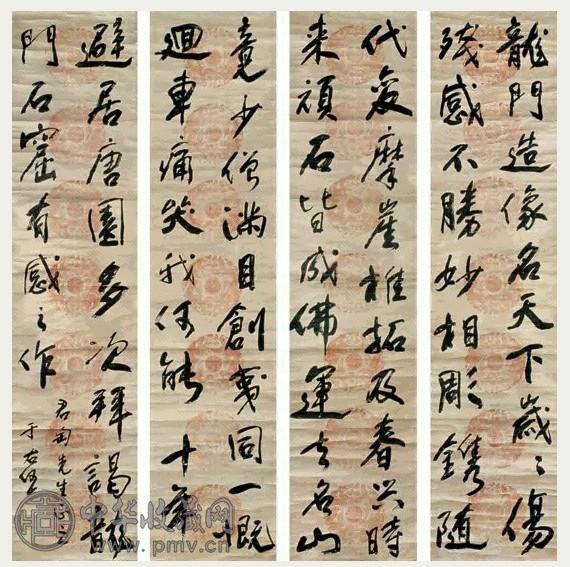 龍門造像名天下歲々傷
殘感不勝妙相彫鐫隨
代變摩崖椎拓及春興時
来頑石皆成佛運去名山
竟少僧滿目創夷同一慨
迴車痛哭我何能十年
避居唐園多次拜謁龍
門石窟有感之作
君匋先生正之
于右任
中华收藏网
www.pmv.cn